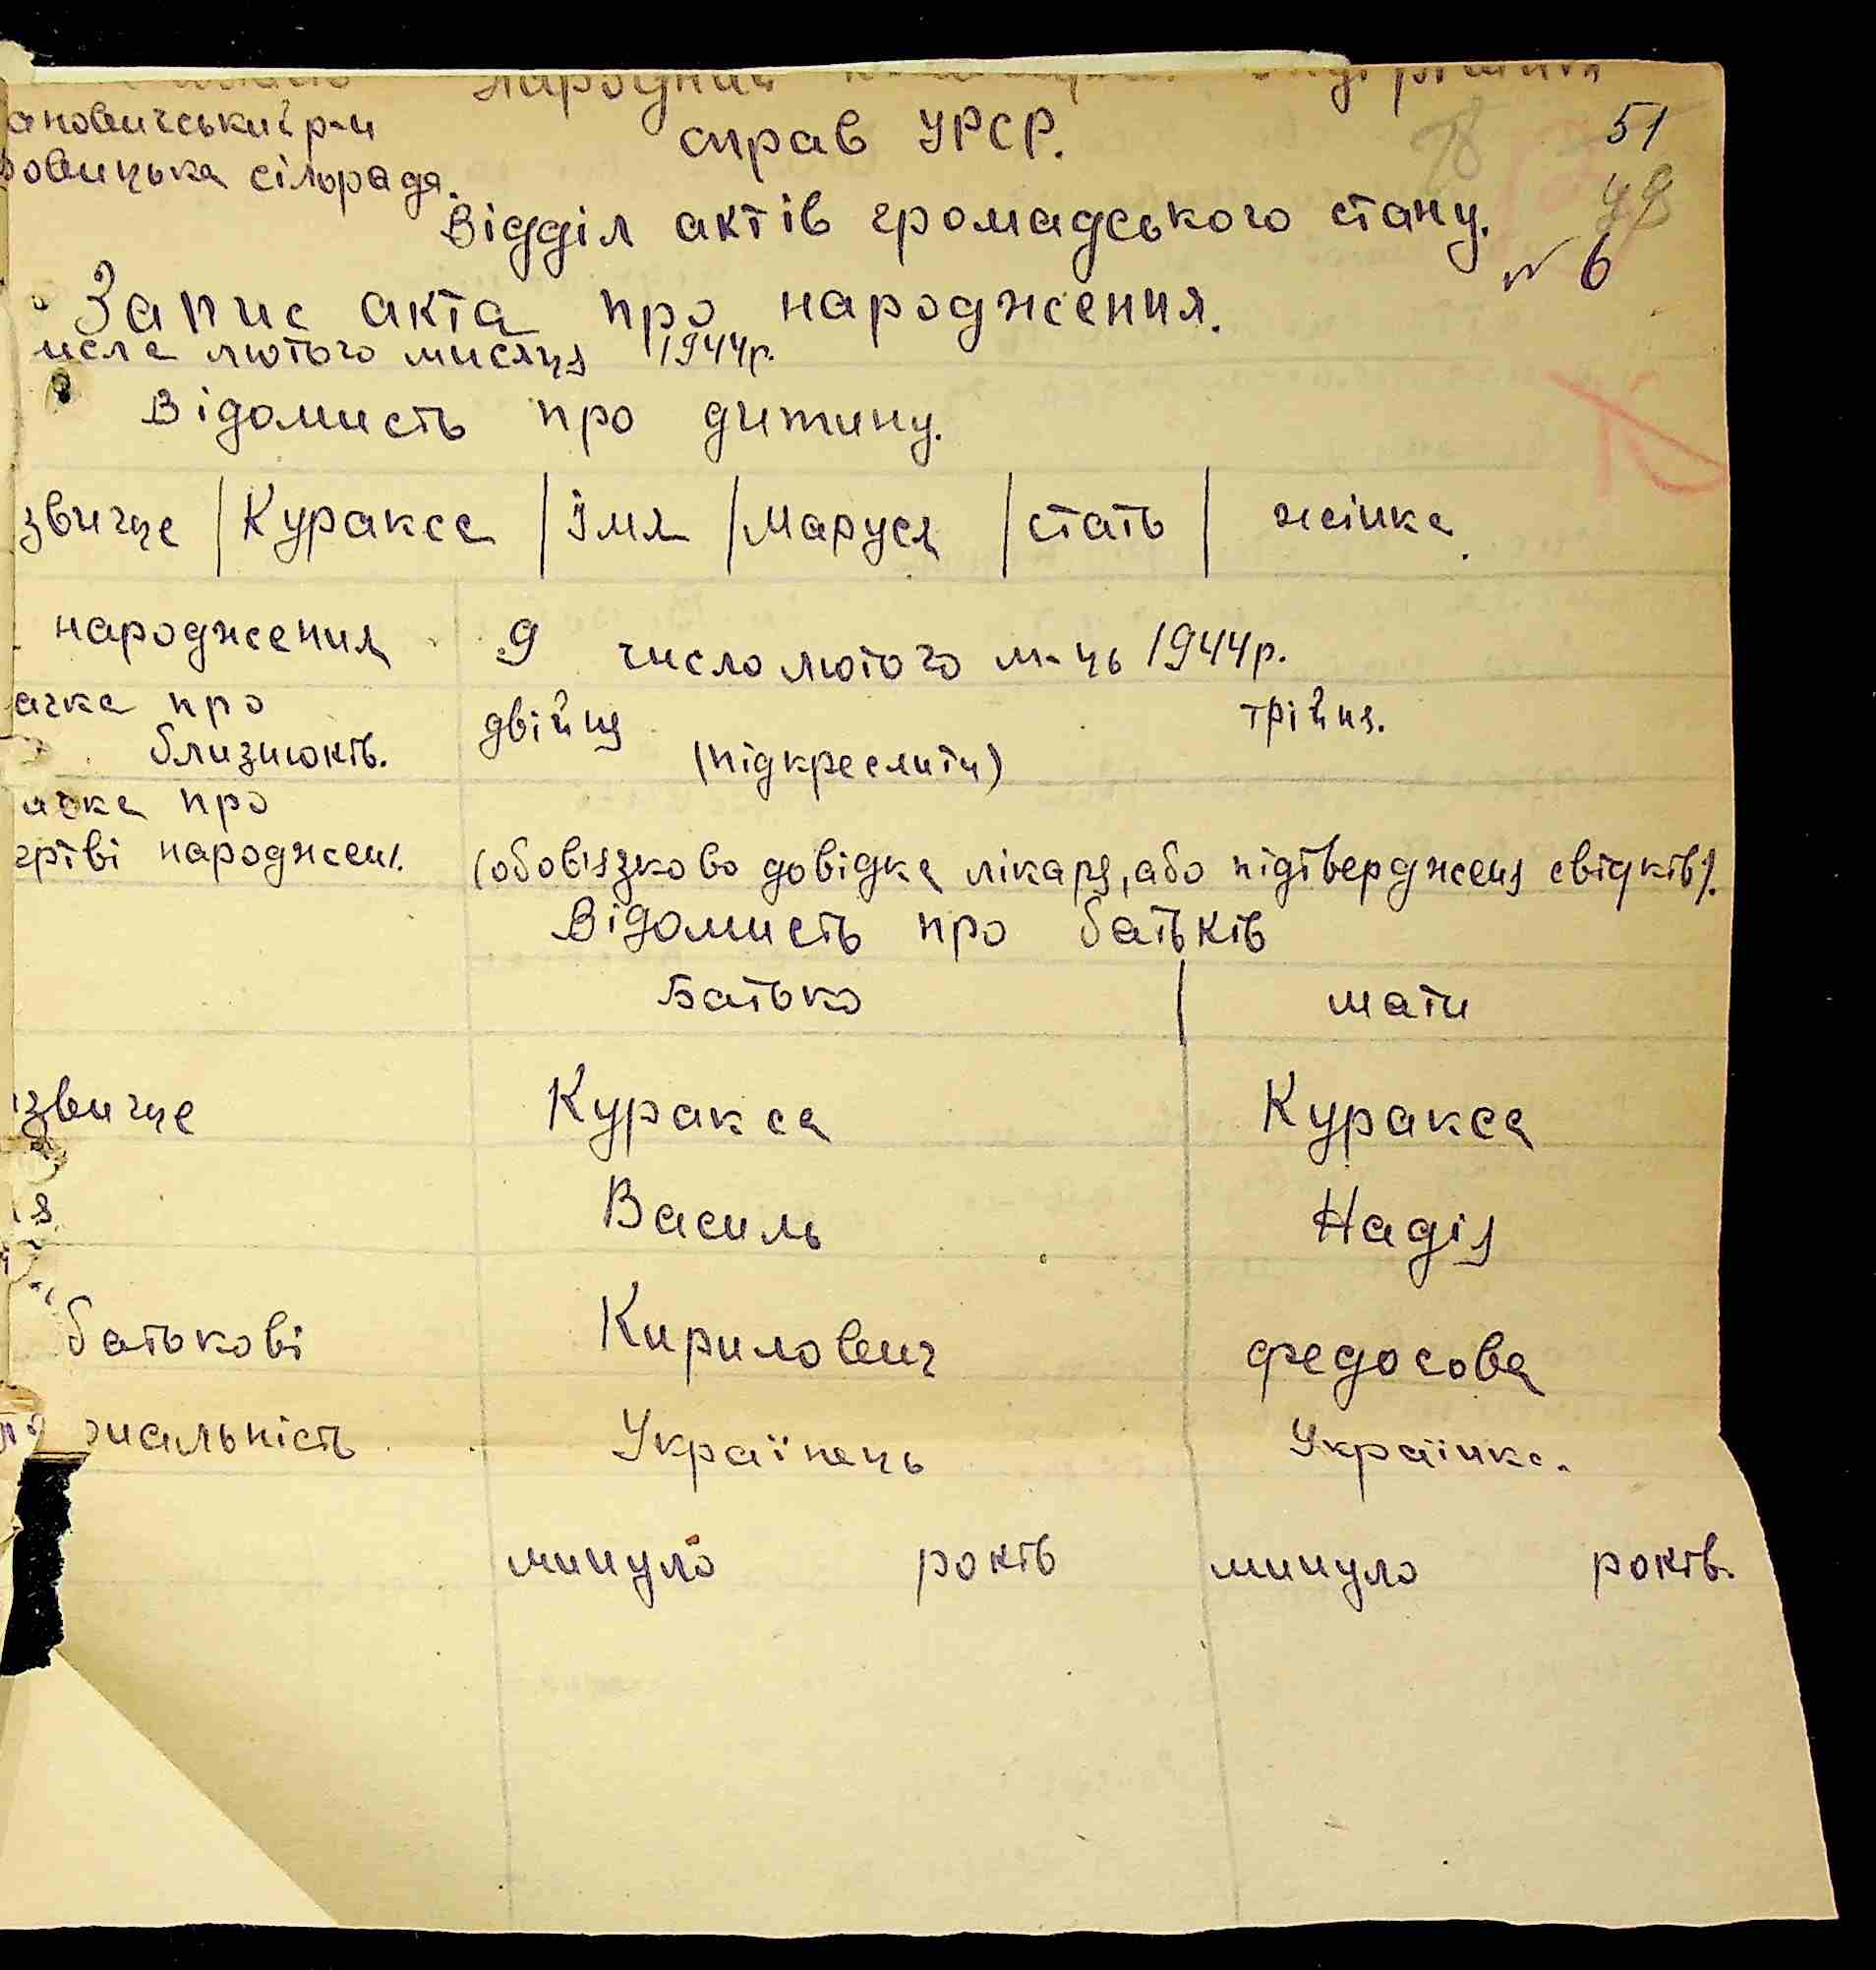 Народний
ановичський р-н
справ УРСР.
51
78
овицька сільрада.
49
Відділ актів громадського стану.
№ 6
Запис акта про народження.
исла лютого мисяця 1944р.
Відомисть про дитину.
звище | Куракса | Імя | Маруся | стать | жінка.
народження 9 число лютого м-ць 1944р.
ачка про двійня трійня.
близнюків. (підкреслити)
ачка про
ертві народжен. (обовязково довідка лікаря, або підтвердженя свідків).
Відомисть про батьків
Батько | мати
звище Куракса Куракса
я Василь Надія
батькові Кирилович Федосова
ональність Українець Українка.
минуло років минуло років.